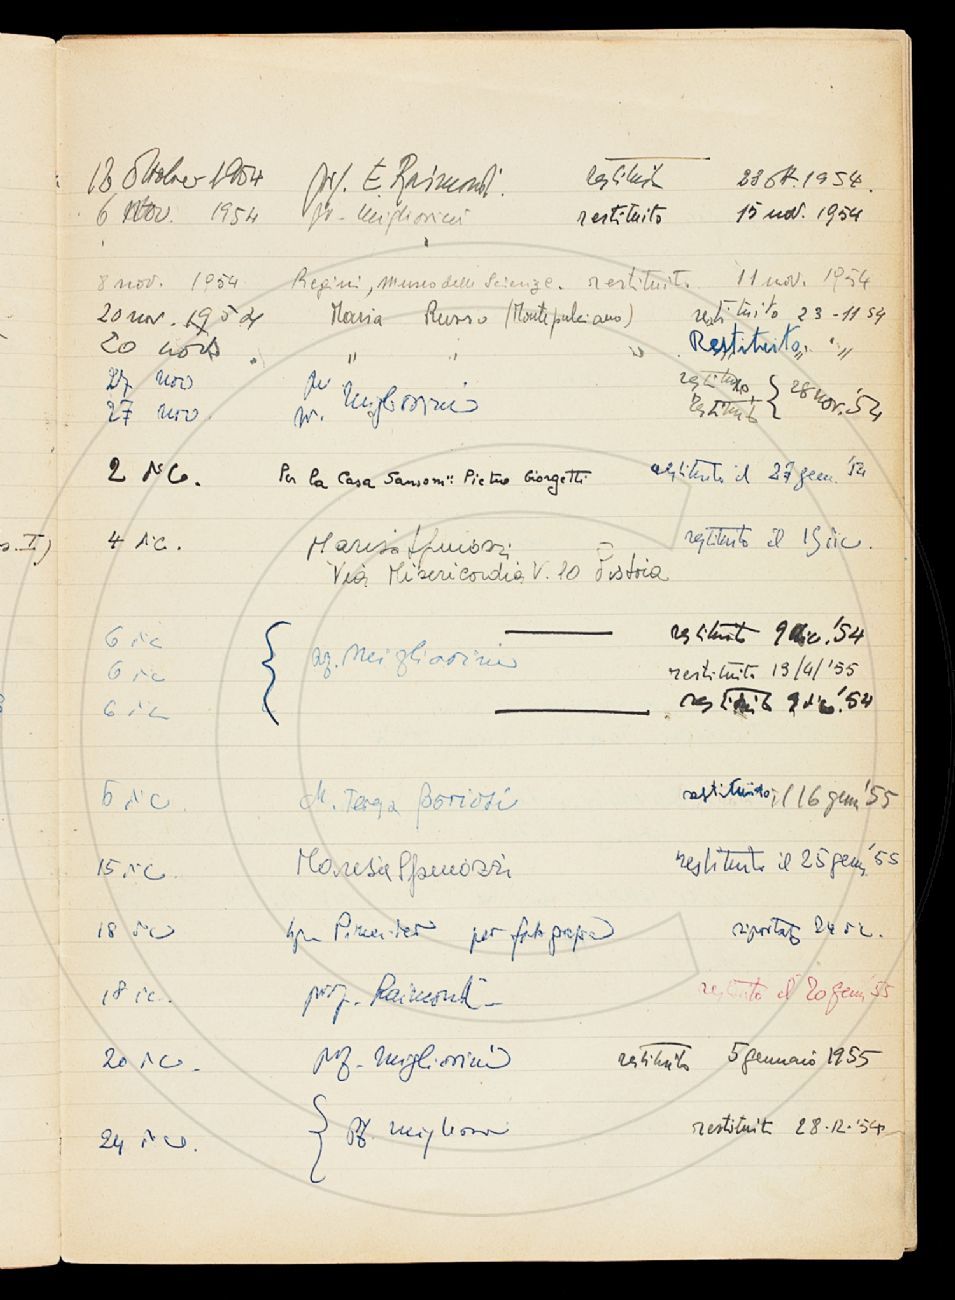 s. II)
18 Oktober 1954 prof. E. Raimondi restituito 23 Ott. 1954.
6 Nov. 1954 pr. Migliorini restituito 15 nov. 1954
8 nov. 1954 Regini, Museo delle Scienze. restituito 11 nov. 1954
20 nov. 1954 Maria Russo (Montepulciano) restituito 23-11 54
20 nov. " " " Restituito " "
27 nov pr restituito
27 nov. pr. Migliorini restituito } 28 nov. '54
2 dic. Per la Casa Sansoni: Pietro Giorgetti restituito il 27 genn. '54
4 dic. Marisa restituito il 15 dic.
Via Misericordia V. 10 Pistoia
6 dic restituito 9 dic. '54
6 dic { Migliorini restituito 13/4/'55
6 dic restituito 9 dic. '54
6 dic. M. Teresa restituito il 16 genn '55
15 dic. Marisa restituito il 25 genn '55
18 dic per fotografia riportato 24 dic.
18 dic. prof. Raimondi - restituito il 20 genn '55
20 dic. prof. Migliorini restituito 5 gennaio 1955
24 dic. { pf. Migliorini restituito 28.12.'54